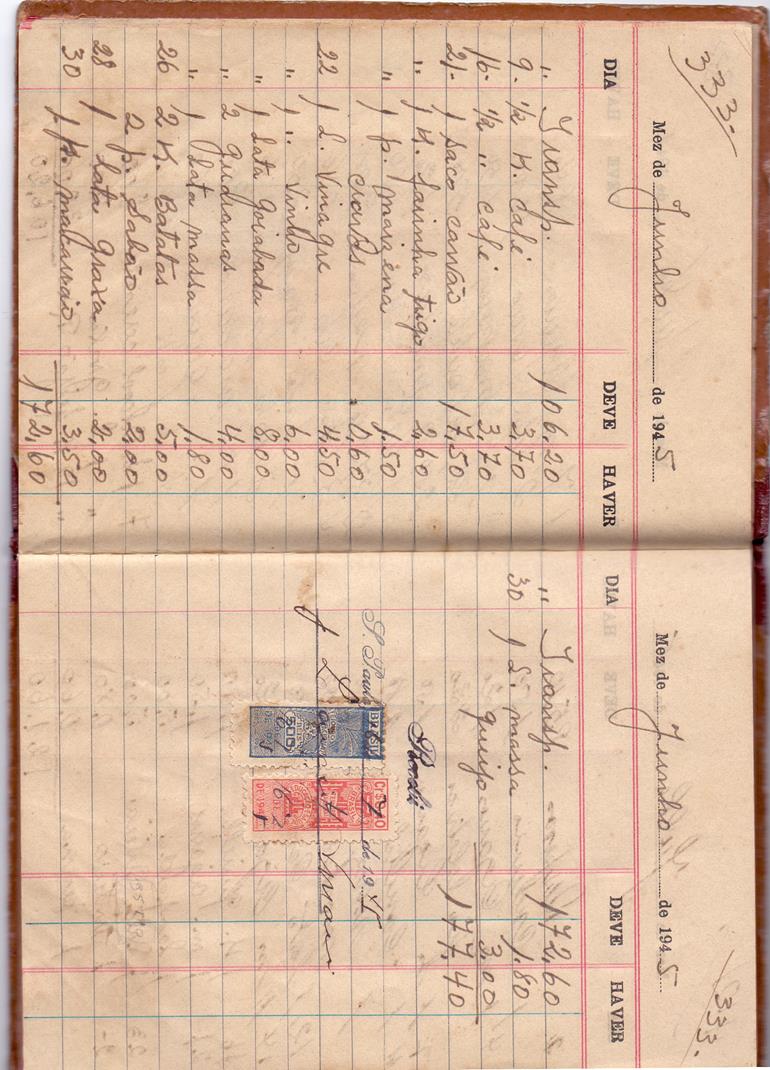 333.
Mez de Junho de 1945
DIA DEVE HAVER
" Transp. 106,20
9. 1/2 K. café 3,70
16. 1/2 " café 3,70
21. 1 saco carvão 17,50
" 1 K. farinha trigo 2,60
" 1 p. maizena 1,50
cravos 0,60
22 1 L. Vinagre 4,50
" 1 " Vinho 6,00
" 1 Lata Goiabada 8,00
" 2 Guaranas 4,00
" 1 Lata massa 1,80
26 2 K. Batatas 5,00
2 p. Sabão 2,00
28 1 Lata Graxa 2,00
30 1 p. macarrão 3,50
172,60
333.
Mez de Junho de 1945
DIA DEVE HAVER
" Transp. 172,60
30 1 L. massa 1,80
queijo 3,00
177,40
S. Paulo de 1945
BRASIL